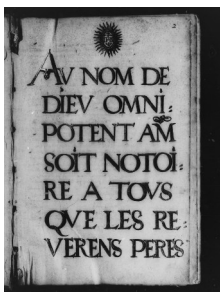 2
AV NOM DE
DIEV OMNI:
POTENT AM
SOIT NOTOI:
RE A TOVS
QVE LES RE:
VERENS PERES